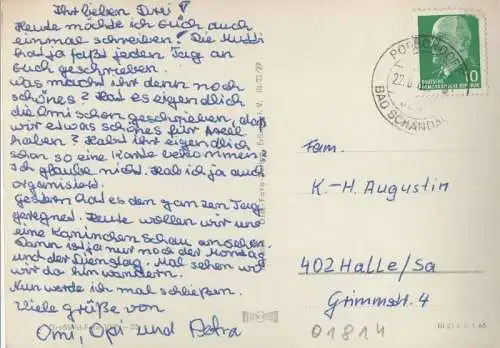 Ihr lieben Drei!
Heute möchte ich Euch auch
einmal schreiben. Die Mutti
hat ja faßt jeden Tag an
Euch geschrieben.
was macht ihr denn noch
schönes? Hat es eigendlich
die Omi schon geschrieben, daß
wir etwas schönes für Axell
haben? Habt ihr eigendlich
schon so eine Karte bekommen?
Ich glaube nicht. Hab ich ja auch
organisiert.
Gestern hat es den ganzen Tag
geregnet. Heute wollen wir uns
eine Kaninchen Schau ansehen.
Dann ist ja nur noch der Montag
und der Dienstag. Mal sehen wo
wir da hinwandern.
Nun werde ich mal schließen.
Viele grüße von
Omi, Opi und Petra
BAD SCHANDAU
10
DEUTSCHE
DEMOKRATISCHE REPUBLIK
Fam.
K.-H. Augustin
402 Halle/Sa
Grimmstr. 4
01814